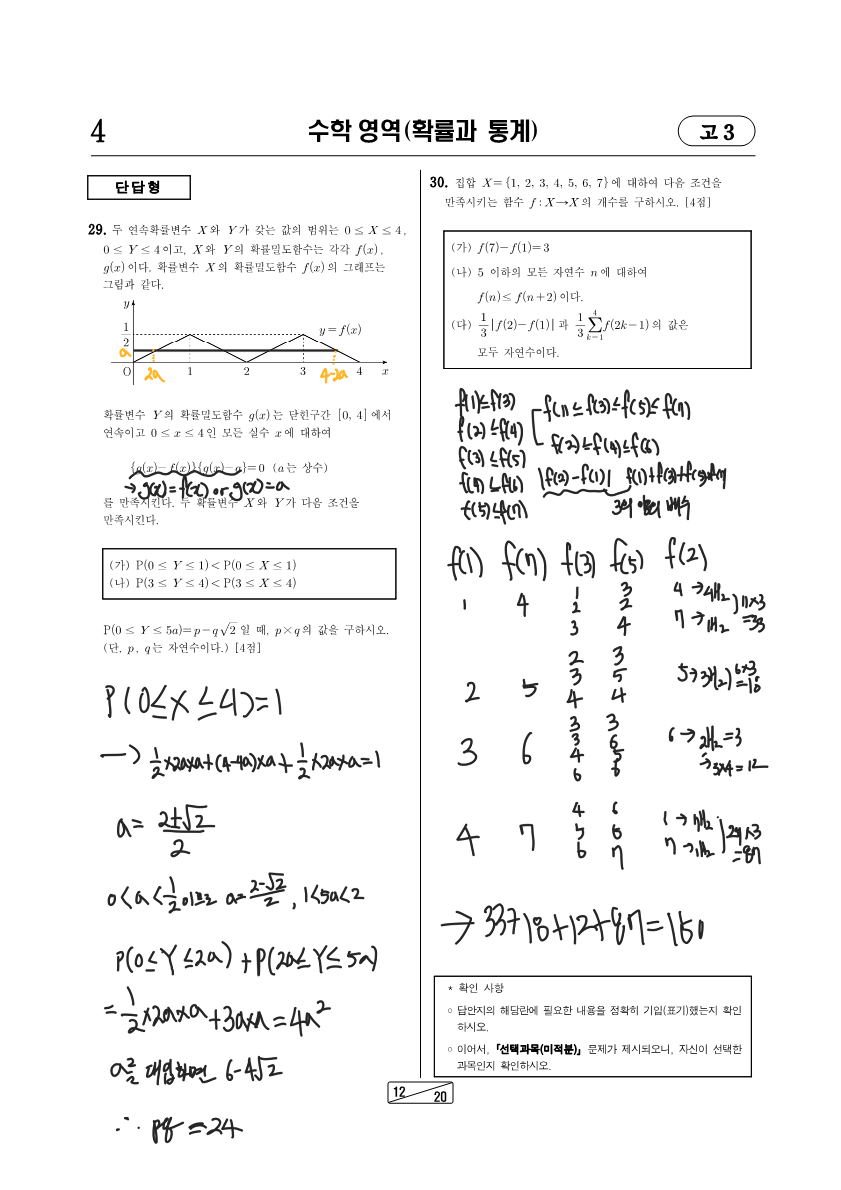 4
수학 영역(확률과 통계)
고 3
단 답 형
29. 두 연속확률변수 X와 Y가 갖는 값의 범위는 0 ≤ X ≤ 4,
0 ≤ Y ≤ 4이고, X와 Y의 확률밀도함수는 각각 f(x),
g(x)이다. 확률변수 X의 확률밀도함수 f(x)의 그래프는
그림과 같다.
y
1/2
y=f(x)
a
O 2a 1 2 3 4-2a 4 x
확률변수 Y의 확률밀도함수 g(x)는 닫힌구간 [0, 4]에서
연속이고 0 ≤ x ≤ 4인 모든 실수 x에 대하여
{g(x)-f(x)}{g(x)-a}=0 (a는 상수)
→ g(x)=f(x) or g(x)=a
를 만족시킨다. 두 확률변수 X와 Y가 다음 조건을
만족시킨다.
(가) P(0 ≤ Y ≤ 1) < P(0 ≤ X ≤ 1)
(나) P(3 ≤ Y ≤ 4) < P(3 ≤ X ≤ 4)
P(0 ≤ Y ≤ 5a)=p-q√2 일 때, p×q의 값을 구하시오.
(단, p, q는 자연수이다.) [4점]
P(0≤X≤4)=1
→ 1/2×2a×a+(4-4a)×a+1/2×2a×a=1
a= (2±√2)/2
0<a<1/2이므로 a=(2-√2)/2, 1<5a<2
P(0≤Y≤2a)+P(2a≤Y≤5a)
=1/2×2a×a+3a×a=4a²
대입하면 6-4√2
∴ pq=24
30. 집합 X={1, 2, 3, 4, 5, 6, 7}에 대하여 다음 조건을
만족시키는 함수 f : X→X의 개수를 구하시오. [4점]
(가) f(7)-f(1)=3
(나) 5 이하의 모든 자연수 n에 대하여
f(n) ≤ f(n+2)이다.
(다) 1/3|f(2)-f(1)|과 1/3 ∑(k=1→4) f(2k-1)의 값은
모두 자연수이다.
f(1)≤f(3)
f(2)≤f(4)
f(3)≤f(5)
f(4)≤f(6)
f(5)≤f(7)
f(1)≤f(3)≤f(5)≤f(7)
f(2)≤f(4)≤f(6)
|f(2)-f(1)| f(1)+f(3)+f(5)+f(7)
3의 배수
f(1) f(7) f(3) f(5) f(2)
1 4 1 3 4→4H2
2 2 7→1H2
3 4 11×3
=33
2 5 2 3 5→3H2
3 5 6×3
4 4 =18
3 6 3 3 6→2H2=3
3 6 →3×4=12
4 5
6 6
4 7 4 6 1→7H2
5 6 7→1H2
6 7 29×3
=87
→ 33+18+12+87=150
* 확인 사항
○ 답안지의 해당란에 필요한 내용을 정확히 기입(표기)했는지 확인
하시오.
○ 이어서, 「선택과목(미적분)」 문제가 제시되오니, 자신이 선택한
과목인지 확인하시오.
12
20